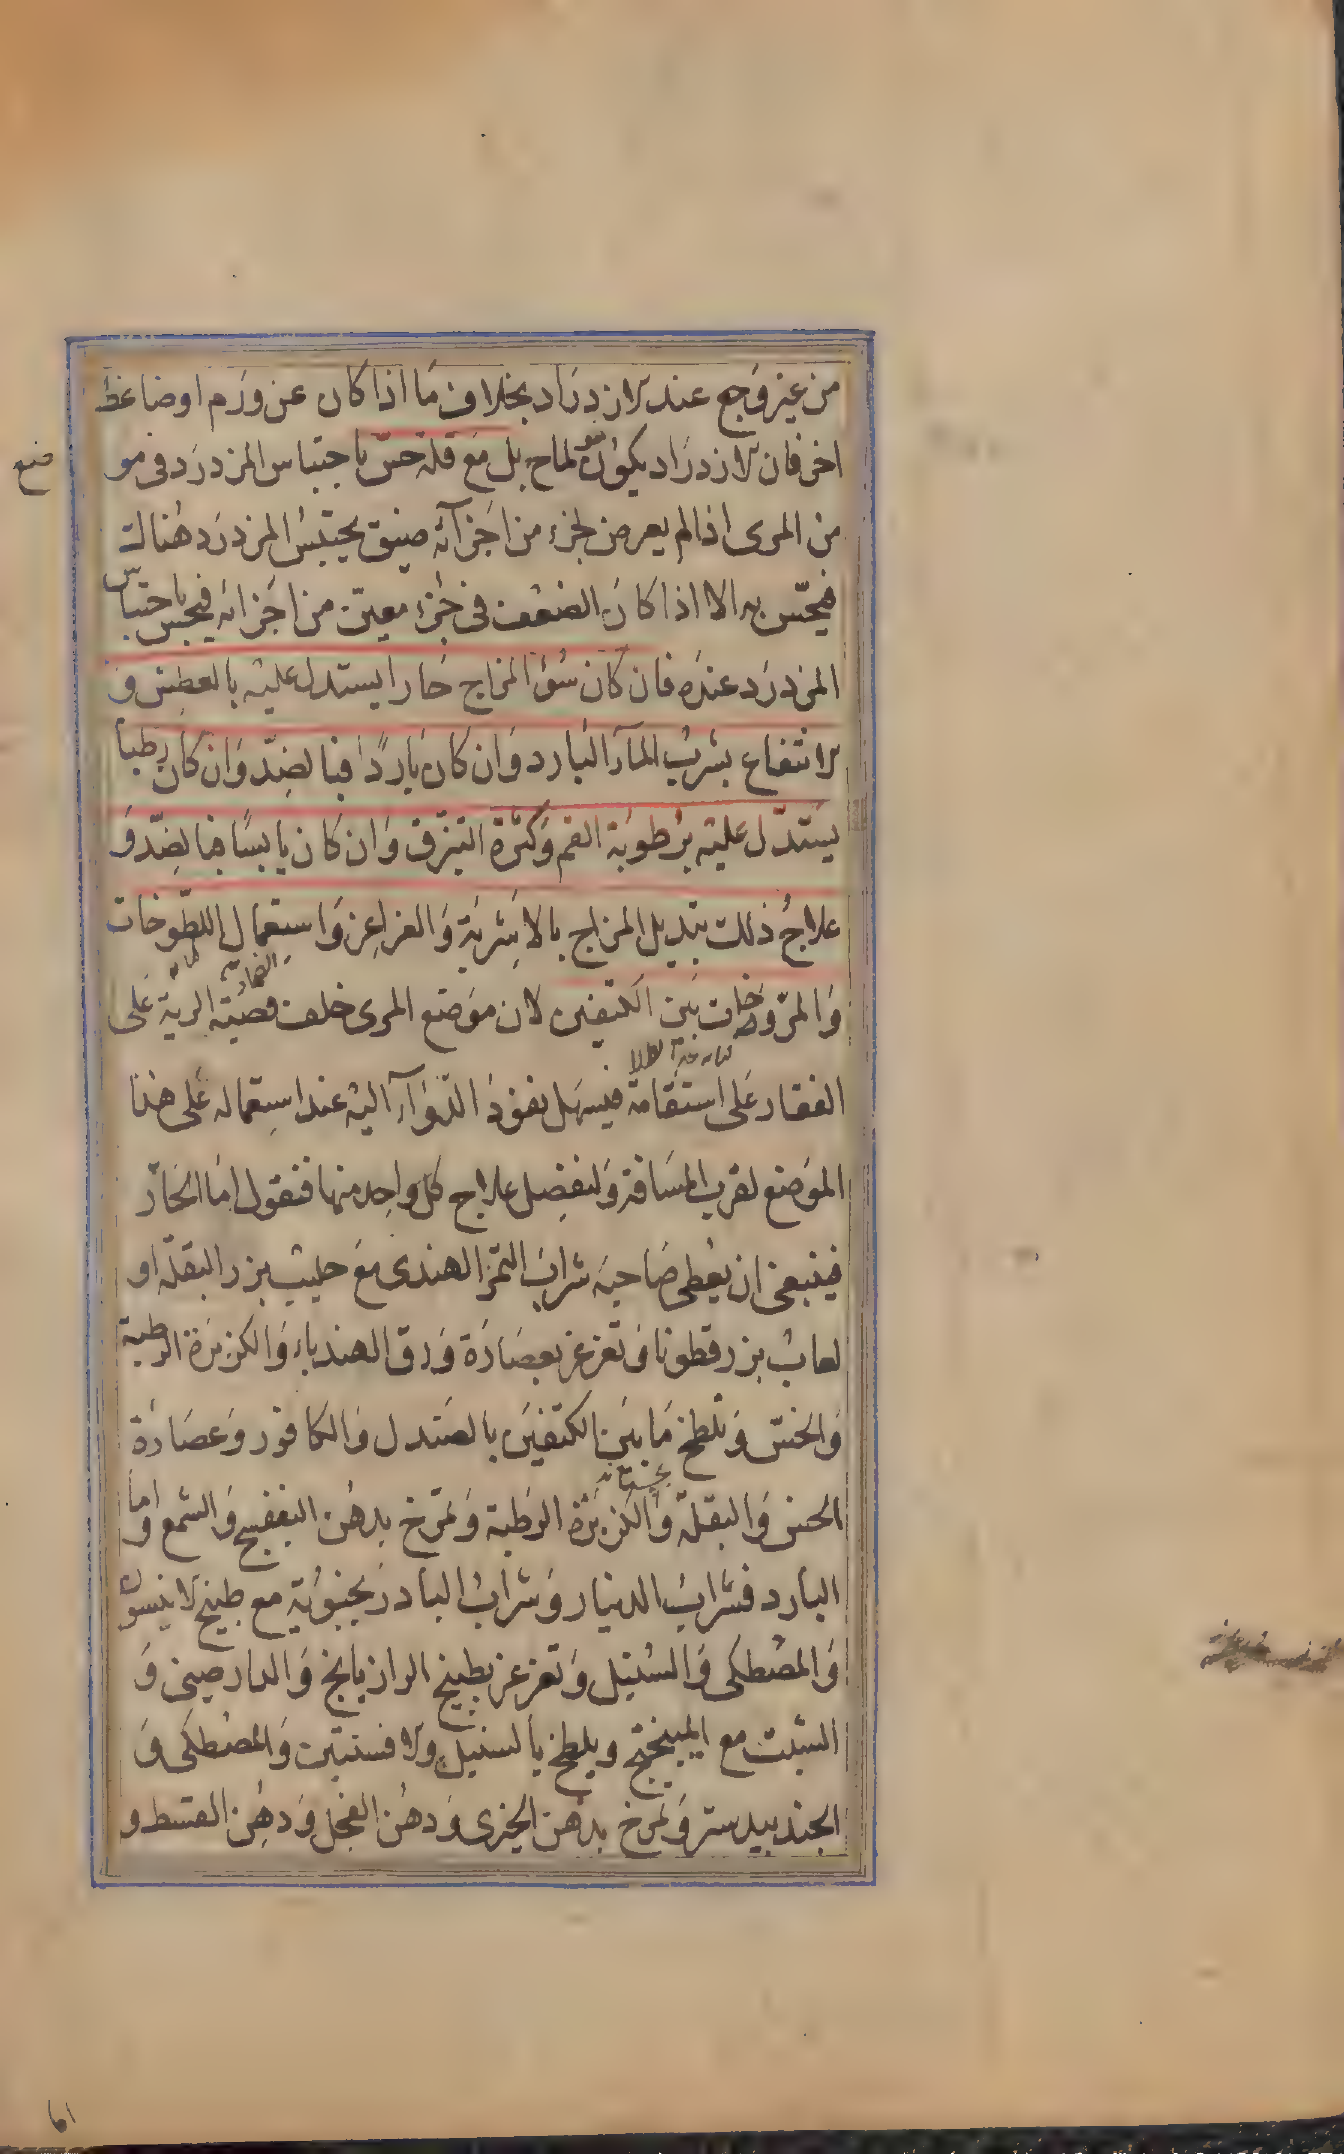 من غير وجع عند الازدراد بخلاف ما اذا كان عن ورم او ضاغط
اخر فان الازدراد يكون مؤلما ح بل مع قلة حس باحتباس المزدرد فى مو
ضع
من المرى اذا لم يعرض لجزء من اجزائه ضيق يحتبس المزدرد هناك
فيحس به الا اذا كان الضعف فى جزء معين من اجزائه فيحس باحتباس
المزدرد عنده فان كان سوء المزاج حارا يستدل عليه بالعطش و
الانتفاع بشرب الماء البارد وان كان باردا فبالضد وان كان رطبا
يستدل عليه برطوبة الفم وكثرة التبزق وان كان يابسا فبالضد و
علاج ذلك بتديل المزاج بالاشربة والغراغر واستعمال اللطوخات
والمروخات بين الكتفين لان موضع المرى خلف قصبة الرية على
الفقار على استقامة فيسهل نفوذ الدواء اليه عند استعماله على هذا
الموضع لقرب المسافة ولنفصل علاج كل واحد منها فنقول اما الحار
فينبغى ان يعطى صاحبه شراب التمر الهندى مع حليب بزر البقلة او
لعاب بزر قطونا وتغرغر بعصارة ورق الهندباء والكزبرة الرطبة
والخس وتلطخ ما بين الكتفين بالصندل والكافور وعصارة
الخس والبقلة والكزبرة الرطبة وتمرخ بدهن البنفسج والشمع واما
البارد فشراب الدينار وشراب البادرنجبوية مع طبيخ الانيسون
والمصطكى والسنبل وتغرغر بطبيخ الرازيانج والدارصينى و
الشبت مع الميبختج ويلطخ بالسنبل والافسنتين والمصطكى و
الجندبيدستر وتمرخ بدهن الخيرى ودهن الفجل ودهن القسط و